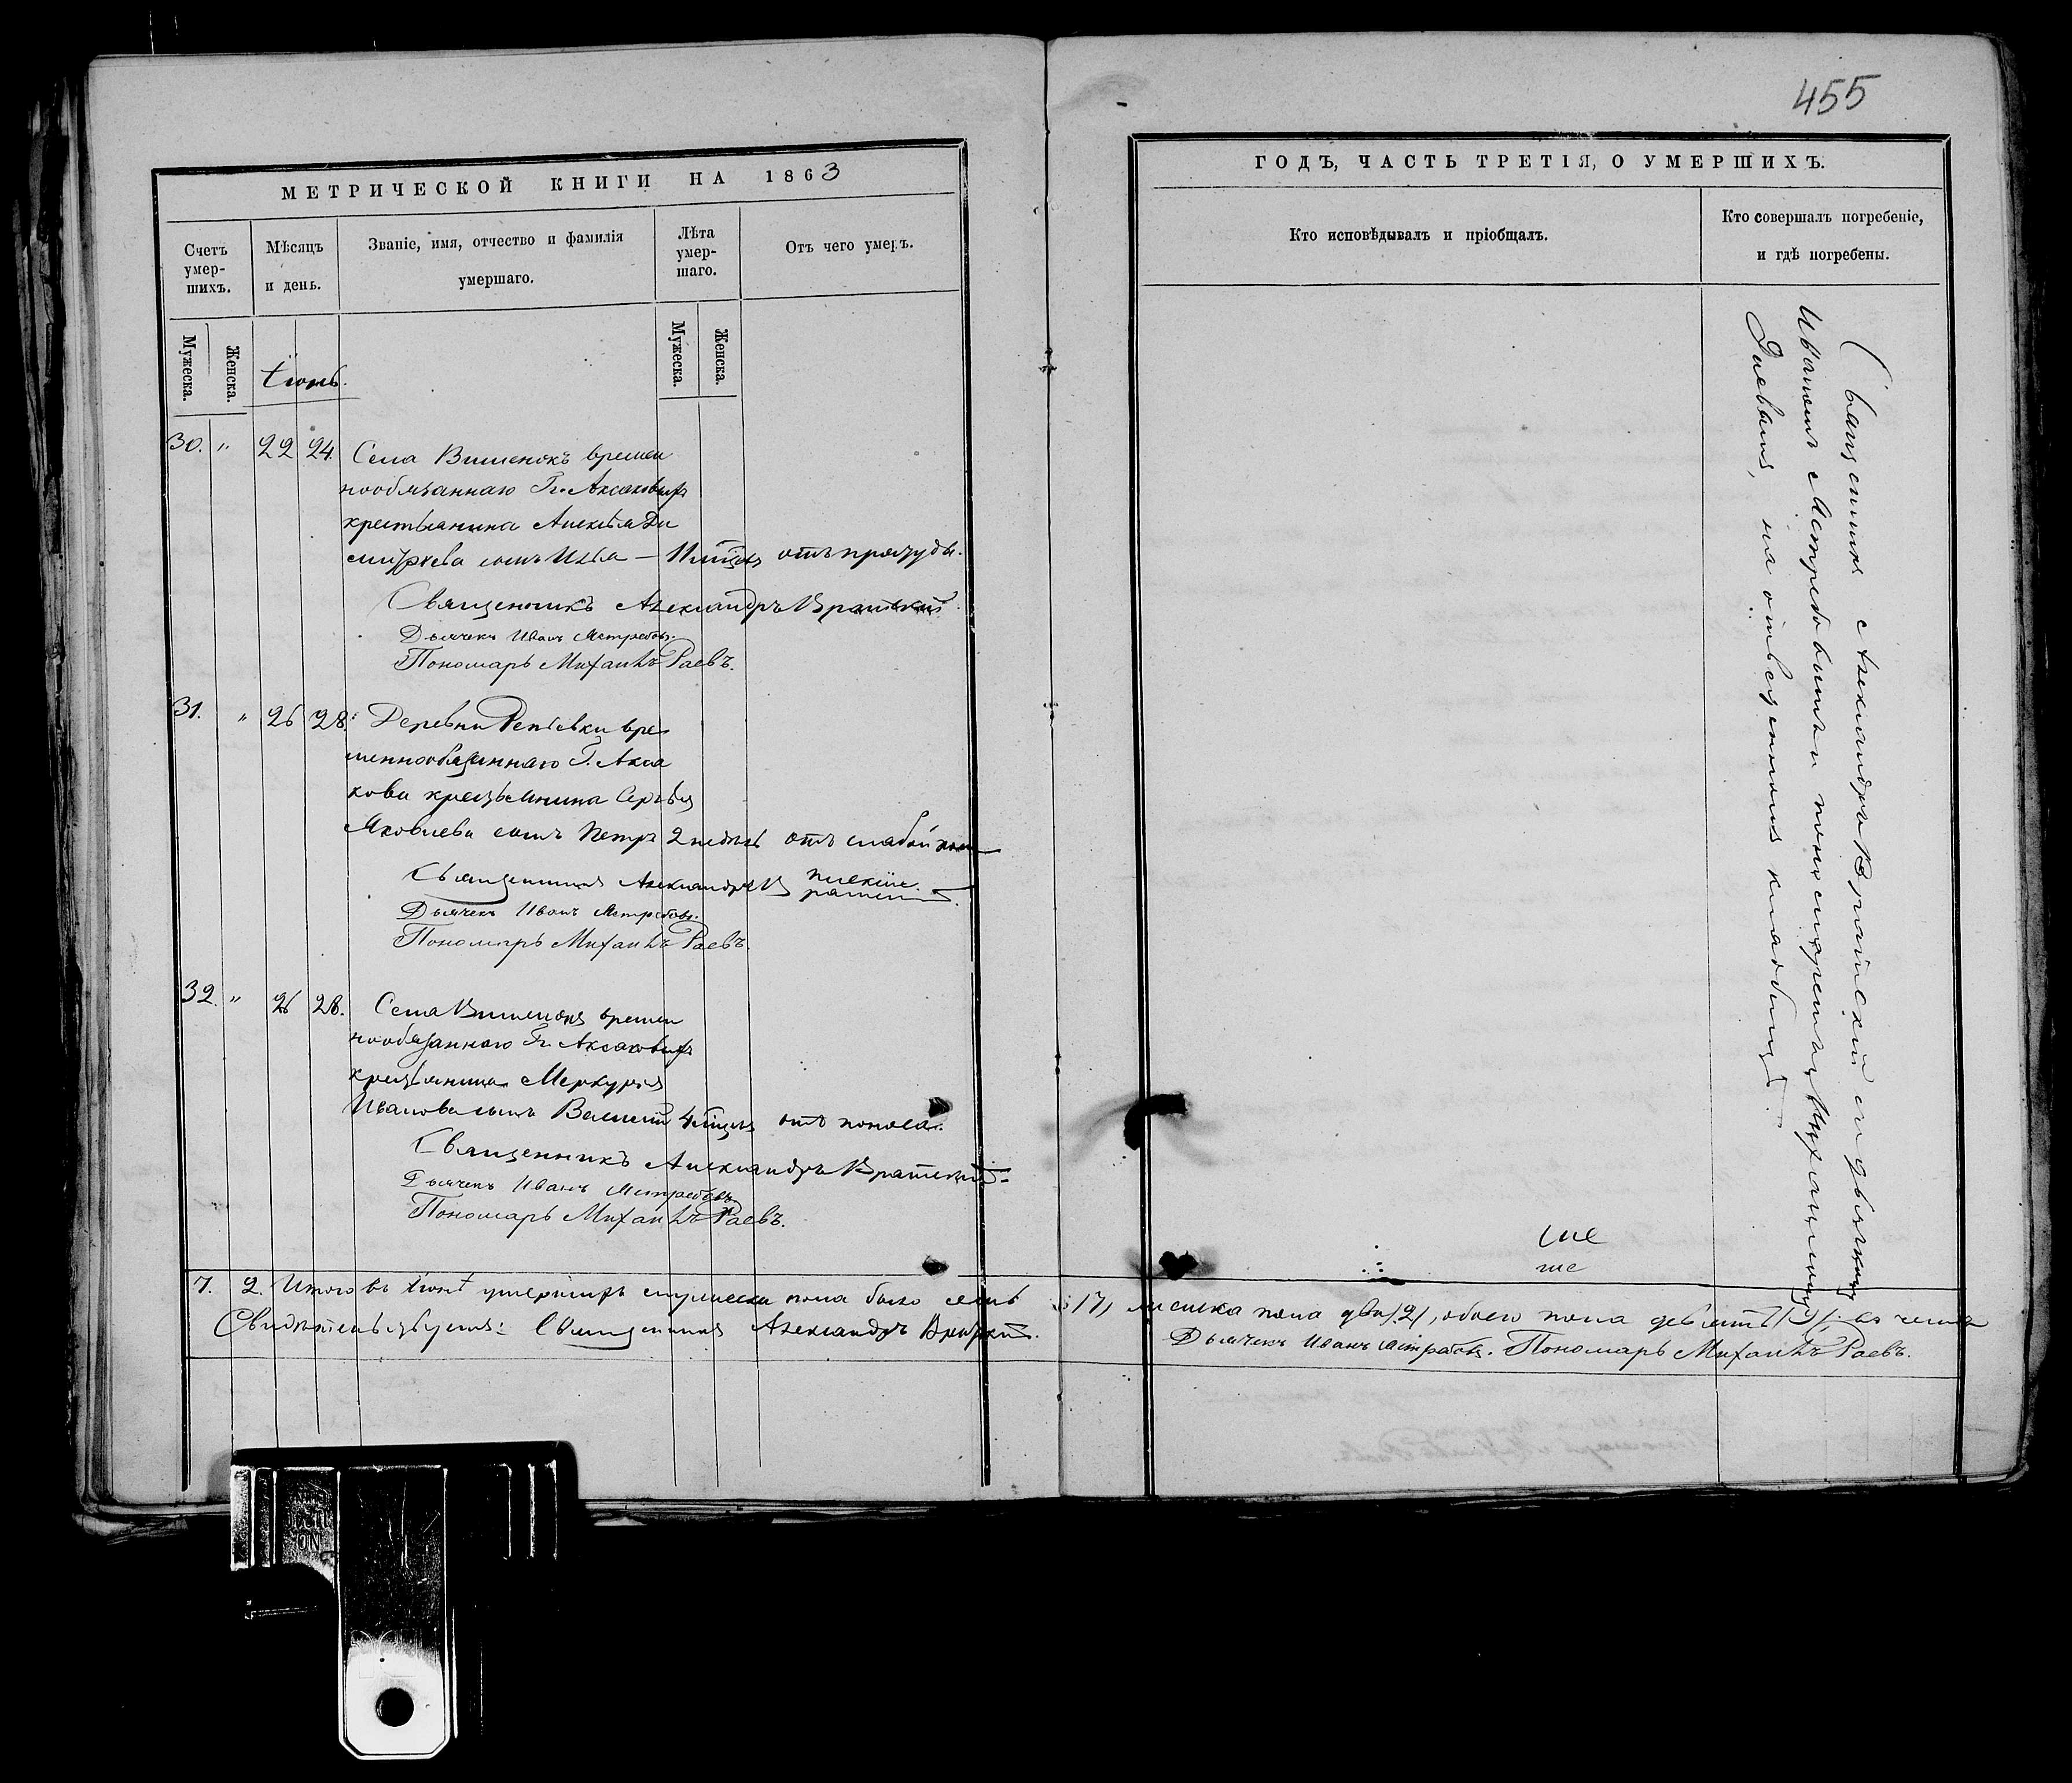 455
МЕТРИЧЕСКОЙ КНИГИ НА 1863
Счетъ умер-
шихъ.
Мѣсяцъ
и день.
Званіе, имя, отчество и фамилія
умершаго.
Лѣта
умер-
шаго.
Отъ чего умеръ.
Мужеска.
Женска.
Іюнь.
Мужеска.
Женска.
30. " 22 24. Села Вишенокъ времен
нообязаннаго Гг. Аксаковыхъ
крестьянина Алексѣя Ди
митріева сынъ Илья —
отъ простуды.
Священникъ Александръ Братскій
Дьячекъ Иванъ Ястребовъ.
Пономарь Михаилъ Раевъ.
31. " 26 28. Деревни Репьевки вре
меннообязаннаго Г. Акса
кова крестьянина Сергѣя
Яковлева сынъ Петръ 2 недѣль отъ слабой
Священникъ Александръ Братскій.
Дьячекъ Иванъ Ястребовъ.
Пономарь Михаилъ Раевъ.
32. " 26 28. Села Вишенокъ времен
нообязаннаго Гг. Аксаковыхъ
крестьянина Меркурія
Иванова сынъ Василій 4 мѣсяц отъ поноса.
Священникъ Александръ Братскій
Дьячекъ Иванъ Ястребовъ
Пономарь Михаилъ Раевъ.
7. 2. Итого въ Іюнѣ умершихъ мужеска пола было семь
Свидѣтельствуемъ: Священникъ Александръ Братскій.
ГОДЪ, ЧАСТЬ ТРЕТІЯ, О УМЕРШИХЪ.
Кто исповѣдывалъ и пріобщалъ.
Кто совершалъ погребеніе,
и гдѣ погребены.
Священникъ Александръ Братскій съ дьячкомъ
Иваномъ Ястребовымъ и пономаремъ Михаиломъ
Раевымъ, на отведенномъ кладбищѣ.
/7/, женска пола два /2/, обоего пола девять /9/. въ
Дьячекъ Иванъ Ястребовъ. Пономарь Михаилъ Раевъ.